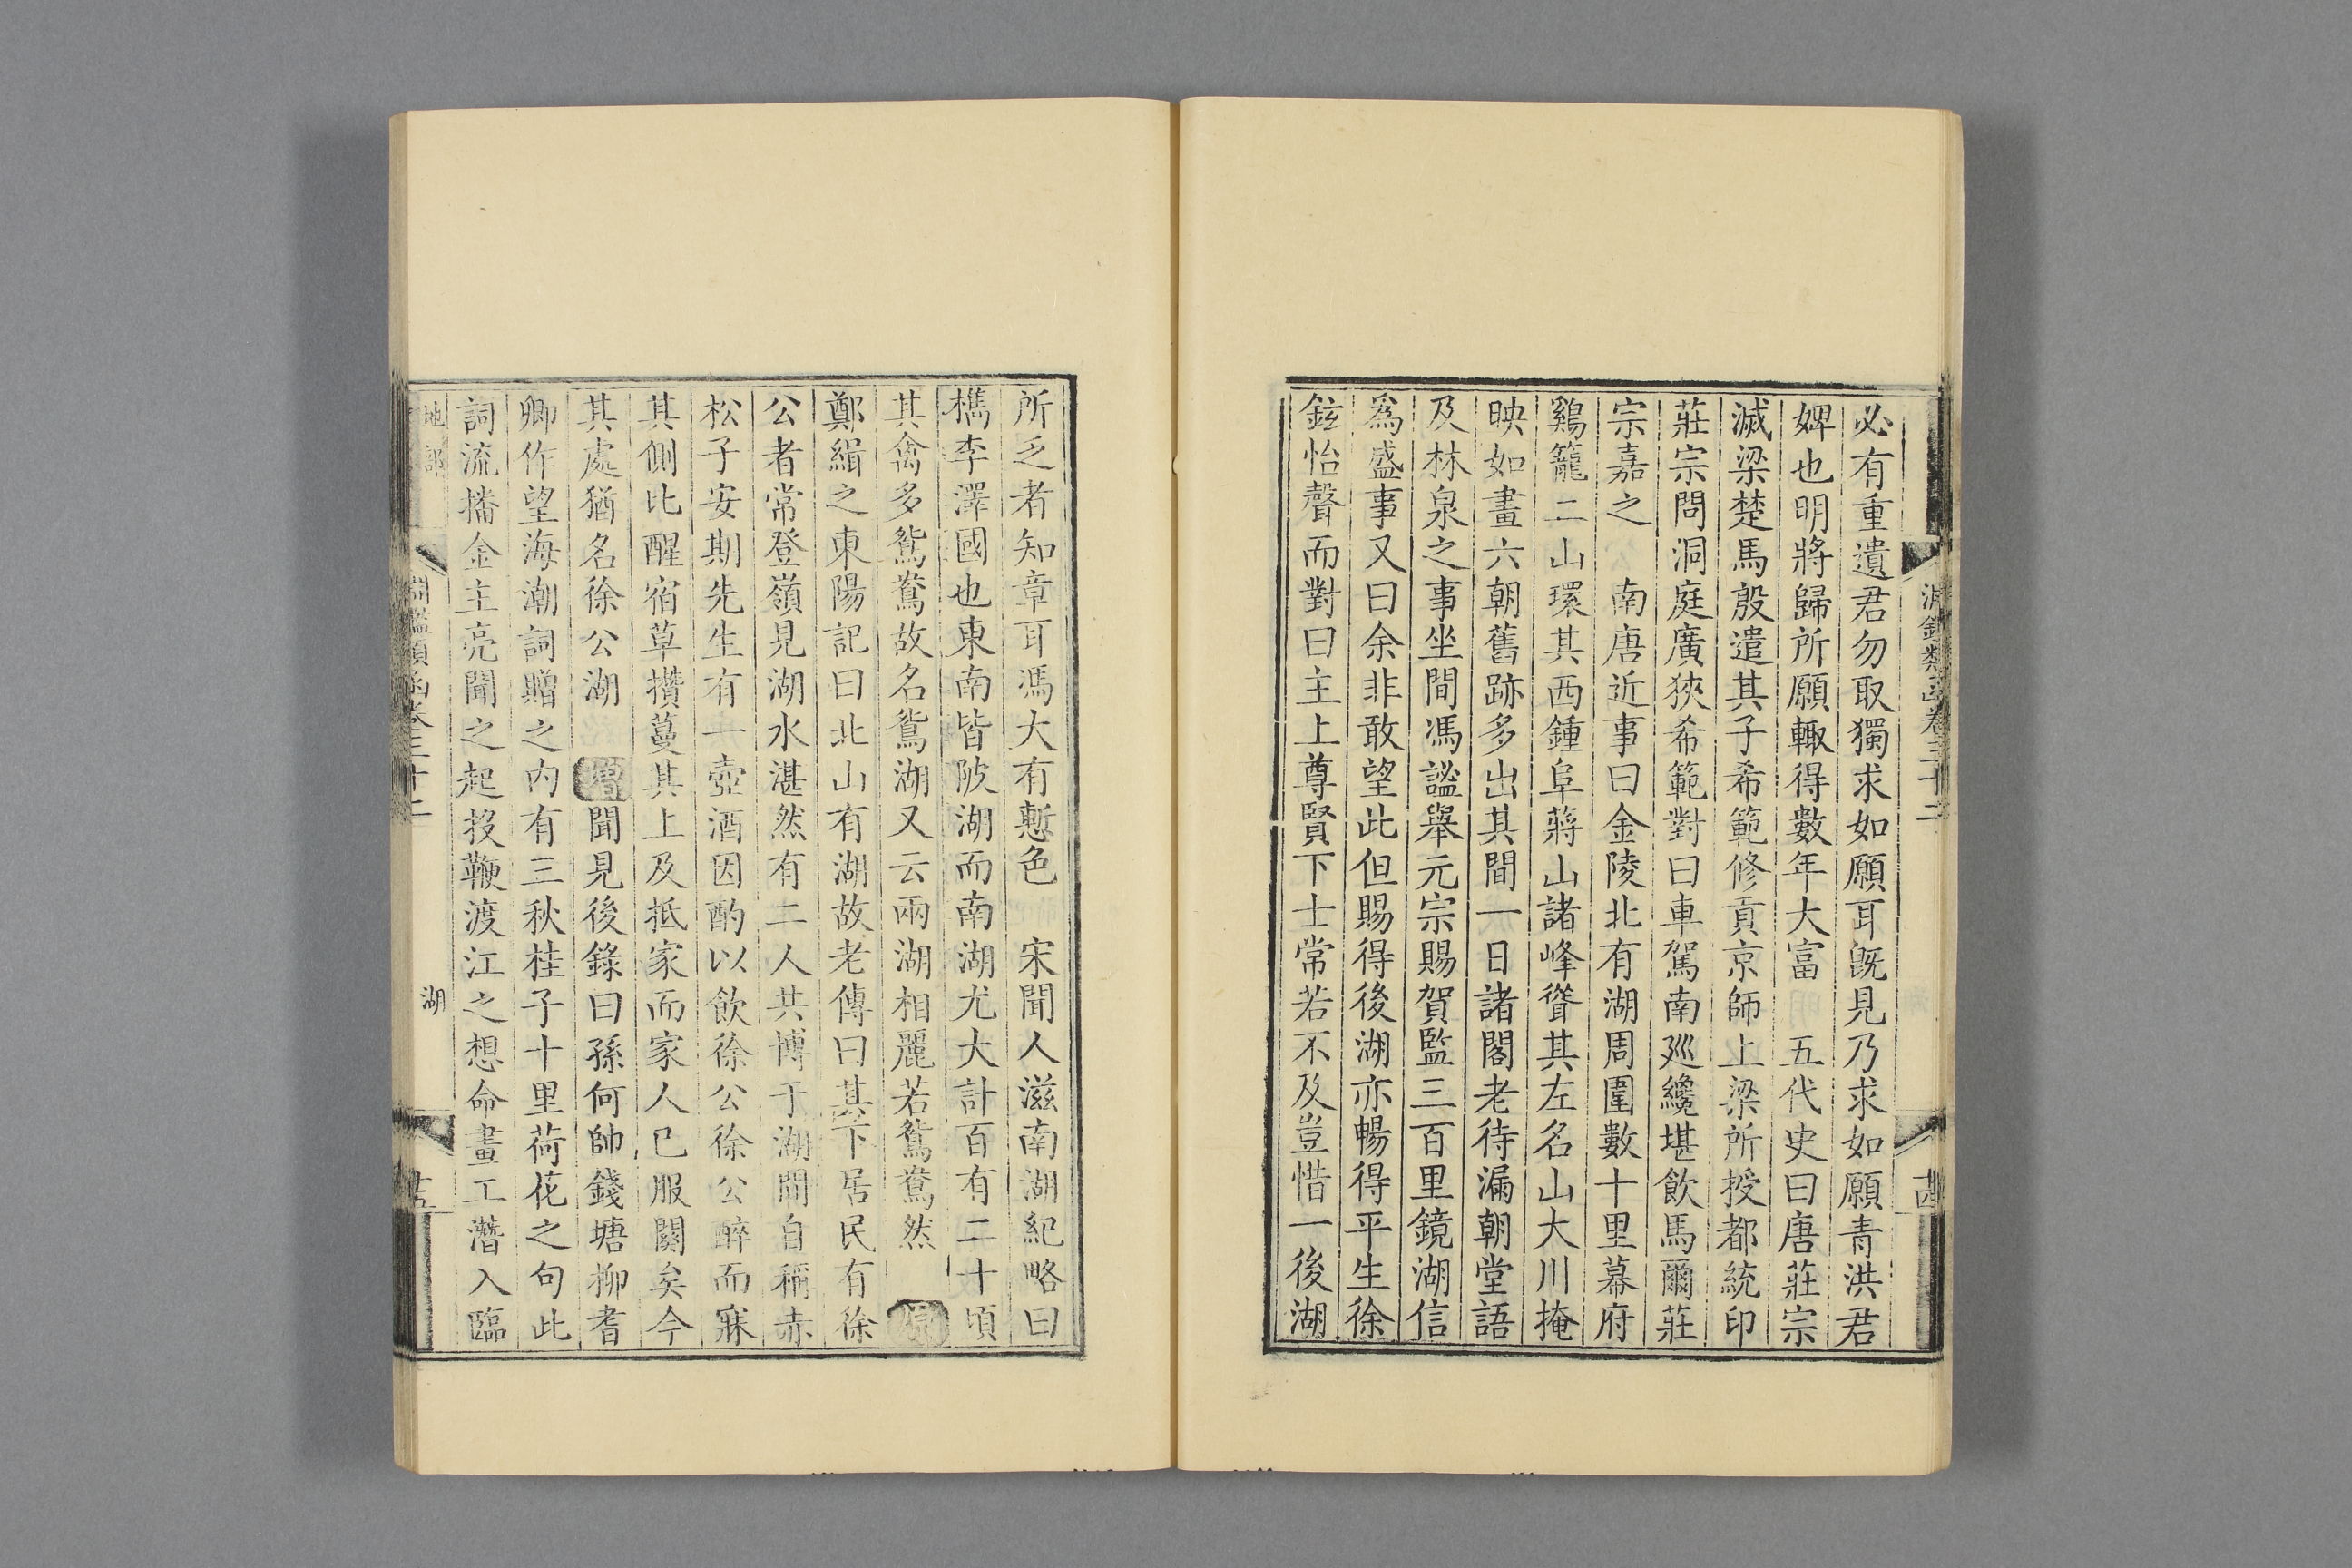 淵鑑類函卷三十二
必有重遺君勿取獨求如願耳旣見乃求如願青洪君
婢也明將歸所願輙得數年大富 五代史曰唐莊宗
滅梁楚馬殷遣其子希範修貢京師上梁所授都統印
莊宗問洞庭廣狹希範對曰車駕南廵纔堪飲馬爾莊
宗嘉之 南唐近事曰金陵北有湖周圍數十里幕府
鷄籠二山環其西鍾阜蔣山諸峰聳其左名山大川掩
映如畫六朝舊跡多出其間一日諸閣老待漏朝堂語
及林泉之事坐間馮謐舉元宗賜賀監三百里鏡湖信
爲盛事又曰余非敢望此但賜得後湖亦暢得平生徐
鉉怡聲而對曰主上尊賢下士常若不及豈惜一後湖
所乏者知章耳馮大有慙色 宋聞人滋南湖紀略曰
檇李澤國也東南皆陂湖而南湖尤大計百有二十頃
其禽多鴛鴦故名鴛湖又云兩湖相麗若鴛鴦然
鄭緝之東陽記曰北山有湖故老傳曰其下居民有徐
公者常登嶺見湖水湛然有二人共博于湖間自稱赤
松子安期先生有一壺酒因酌以飲徐公徐公醉而寐
其側比醒宿草攢蔓其上及抵家而家人已服闋矣今
其處猶名徐公湖 增聞見後錄曰孫何帥錢塘柳耆
卿作望海潮詞贈之內有三秋桂子十里荷花之句此
詞流播金主亮聞之起投鞭渡江之想命畫工潛入臨
地部 淵鑑類函卷三十二 湖